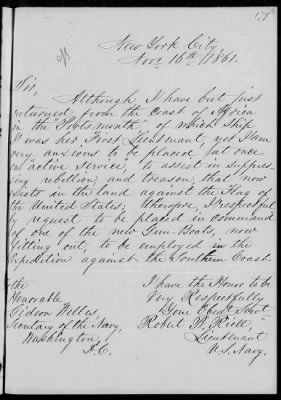 New York City
Novr 16th, 1861.
Sir,
Although I have but just
returned, from the Coast of Africa
in the "Portsmouth" of which Ship
I was her First Lieutenant, yet I am
very anxious to be placed, at once
on "active Service," to assist in suppres-
sing rebellion, and treason, that now
exists in the land against the Flag of
the United States; therefore, I respectful-
ly request to be placed in command
of one of the new Gun-Boats, now
fitting out, to be employed in the
Expedition against the Southern Coast.
I have the Honor to be
Very Respectfully
Your Obedt Servt
Robert F.
Lieutenant
U.S. Navy.
To the
Honorable
Gideon Welles,
Secretary of the Navy,
Washington,
D.C.